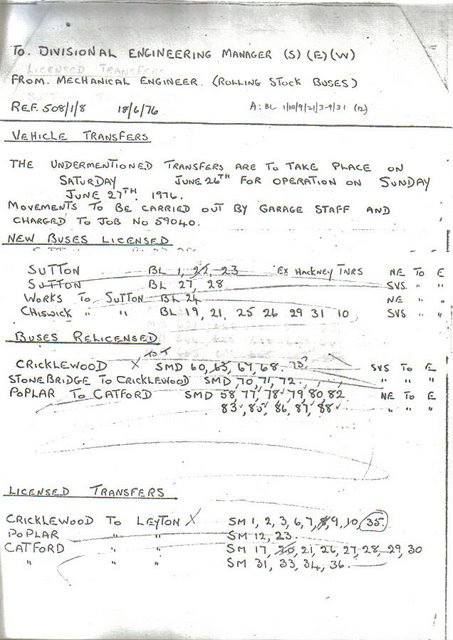 TO. DIVISIONAL ENGINEERING MANAGER (S) (E) (W)
LICENSED TRANSFERS
FROM. MECHANICAL ENGINEER. (ROLLING STOCK BUSES)
REF. 508/1/8 18/6/76 A: BL 1/10/9/21/3-9/31 (12)
VEHICLE TRANSFERS
THE UNDERMENTIONED TRANSFERS ARE TO TAKE PLACE ON
SATURDAY JUNE 26TH FOR OPERATION ON SUNDAY
JUNE 27TH. 1976.
MOVEMENTS TO BE CARRIED OUT BY GARAGE STAFF AND
CHARGED TO JOB NO 59040.
NEW BUSES LICENSED
SUTTON BL 1, 22, 23 EX HACKNEY TNRS NE TO E
SUTTON BL 27, 28 SVS " "
WORKS TO SUTTON BL 24 NE " "
CHISWICK " " BL 19, 21, 25 26 29 31 10 SVS " "
BUSES RELICENSED
TO T
CRICKLEWOOD X SMD 60, 65, 67, 68. 73 SVS TO E
STONEBRIDGE TO CRICKLEWOOD SMD 70, 71, 72. " " "
POPLAR TO CATFORD SMD 58, 77, 78, 79, 80, 82 NE TO E
83, 85, 86, 87, 88 " " "
LICENSED TRANSFERS
CRICKLEWOOD TO LEYTON X SM 1, 2, 3, 6, 7, 8, 9, 10, 35
POPLAR " " SM 12, 23.
CATFORD " " SM 17, 20, 21, 26, 27, 28, 29, 30
" " " SM 31, 33, 34, 36.